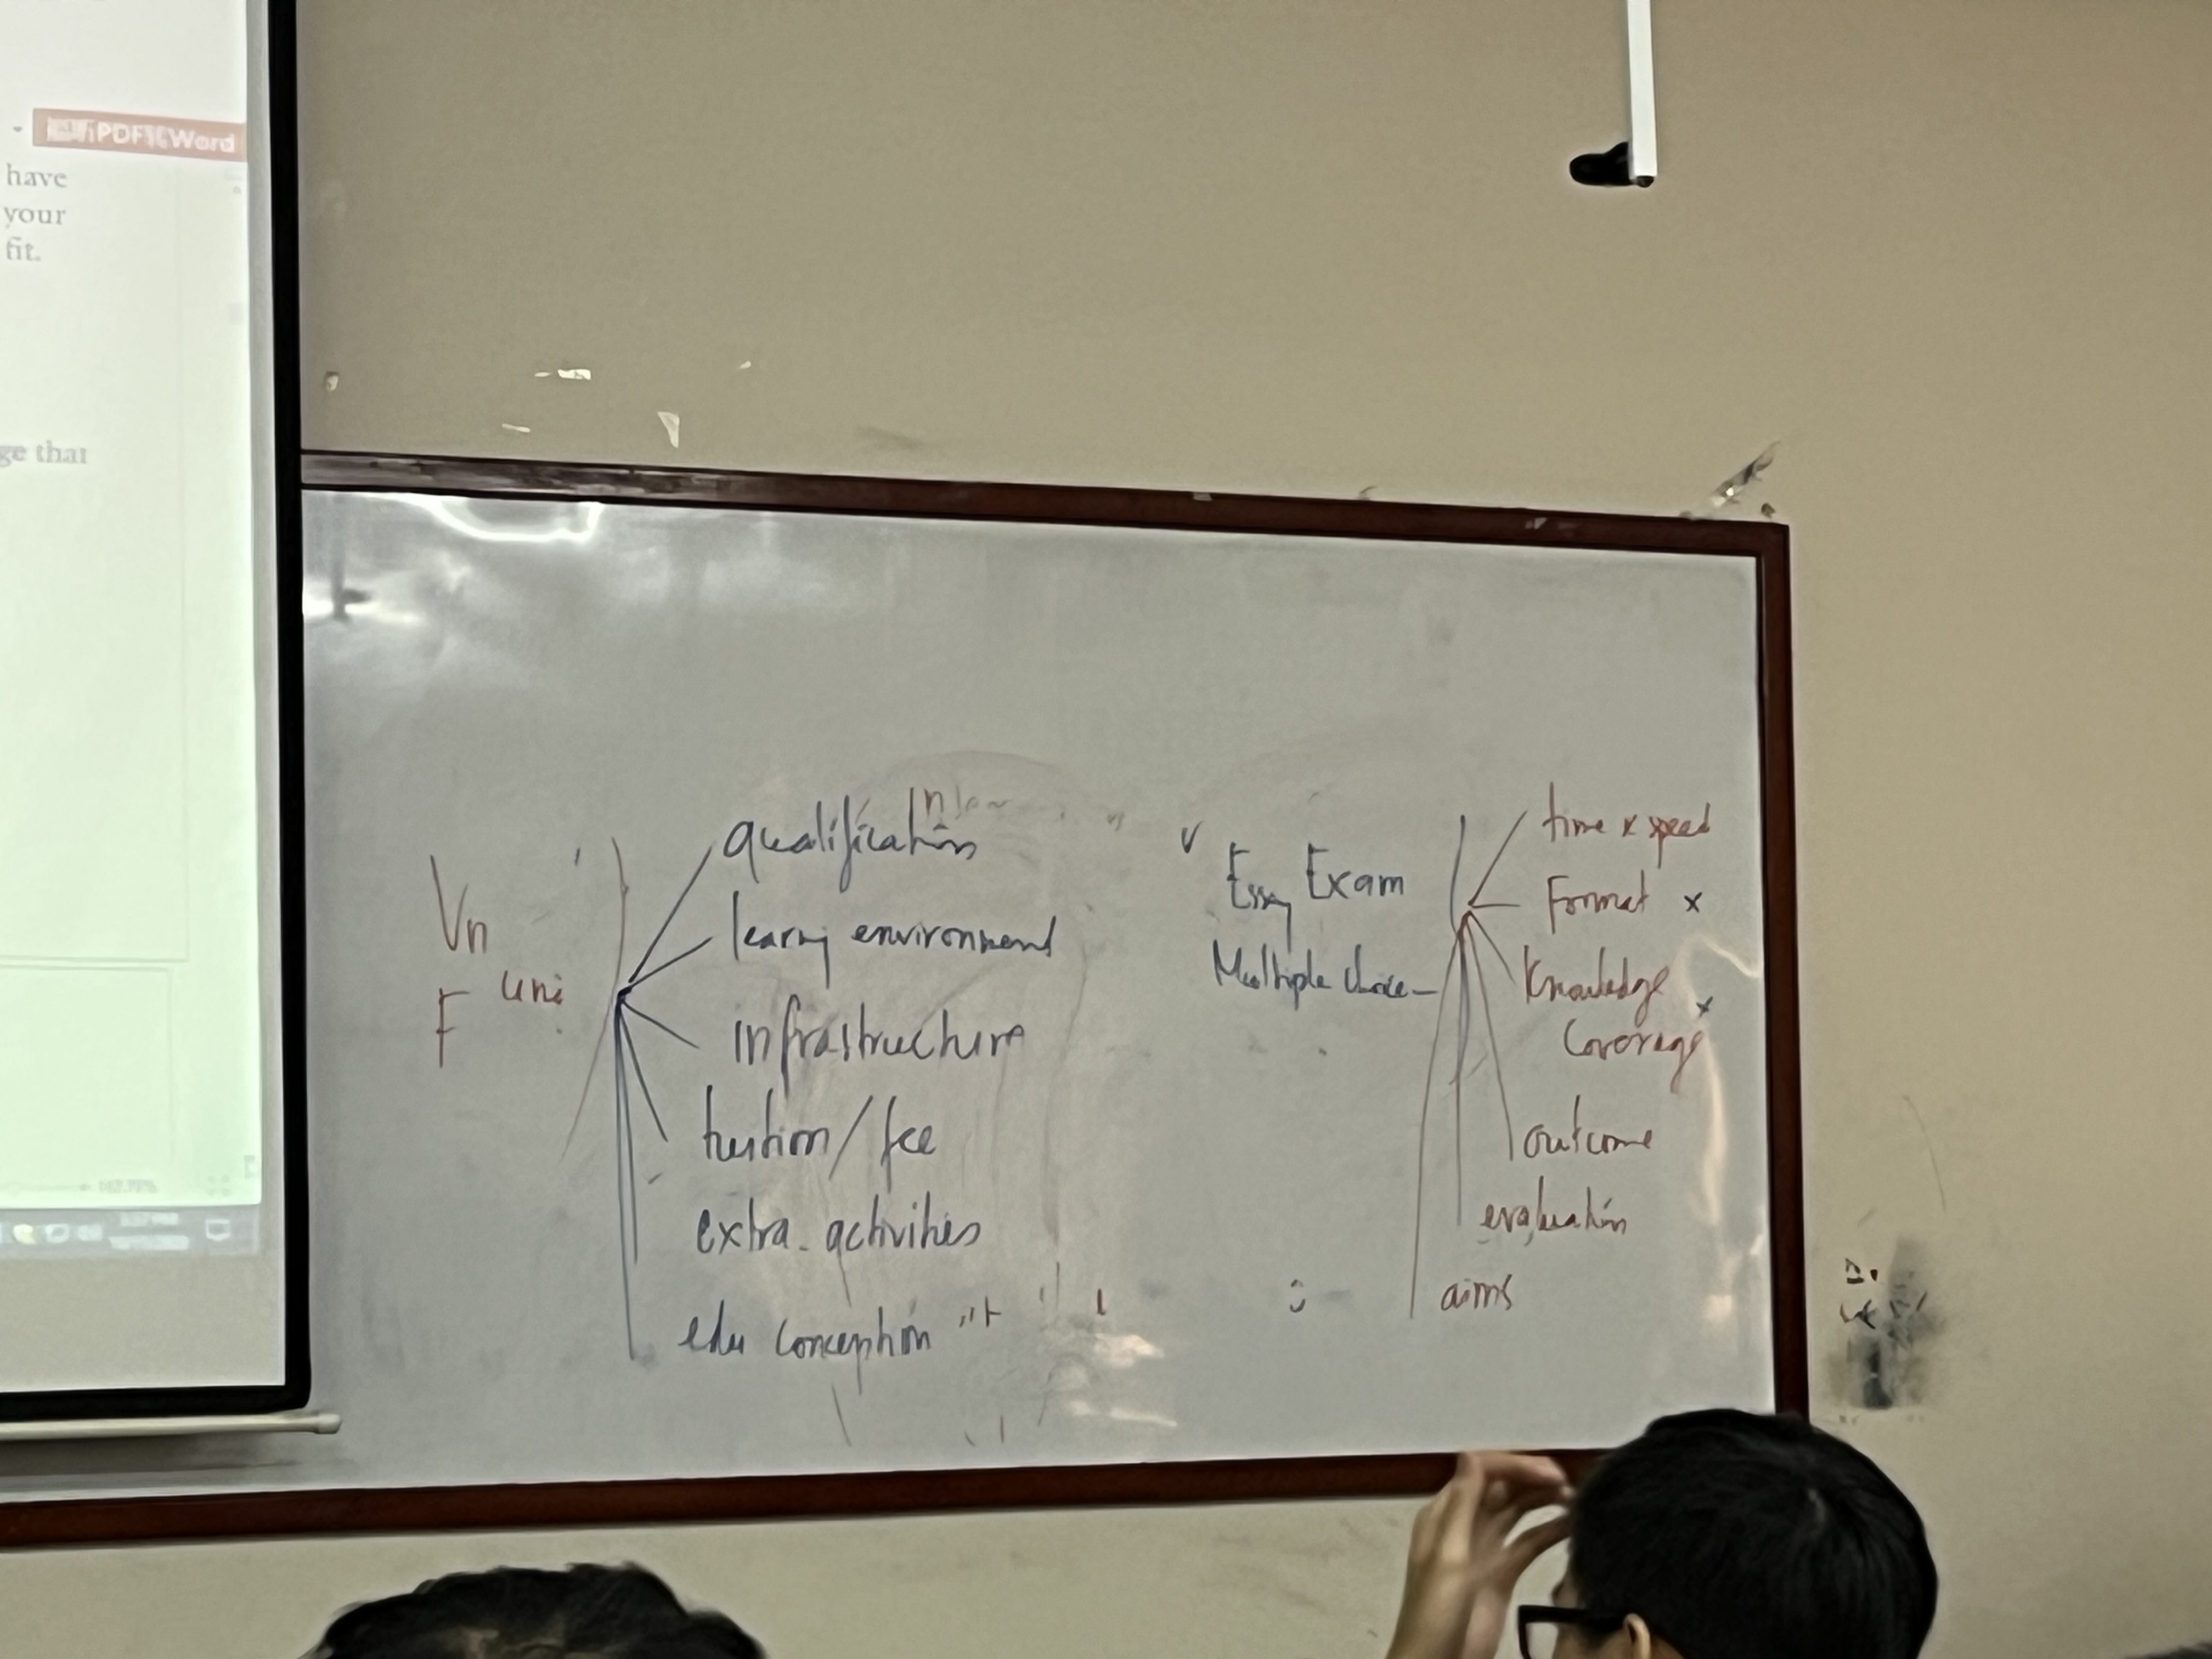 PDF Word
have
your
fit.
ge that
Vn
F uni
qualification
learnj environment
infrastructure
tuition/fee
extra. activities
edu conception
Essay Exam
Multiple choice
time x speed
Format x
Knowledge x
Coverage
outcome
evaluation
aims